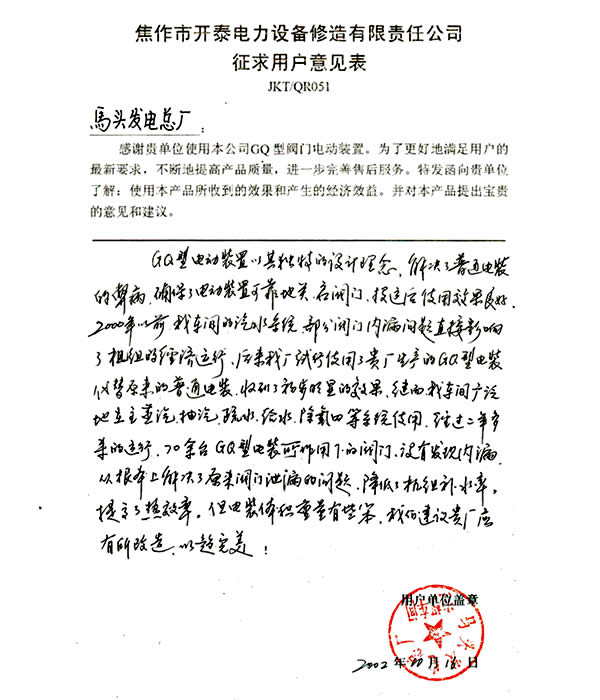 焦作市开泰电力设备修造有限责任公司
征求用户意见表
JKT/QR051
馬头发电总厂：
感谢贵单位使用本公司GQ型阀门电动装置。为了更好地满足用户的
最新要求，不断地提高产品质量，进一步完善售后服务。特发函向贵单位
了解：使用本产品所收到的效果和产生的经济效益。并对本产品提出宝贵
的意见和建议。
GQ型电动装置以其独特的设计理念，解决了普通电装
的弊病，确保了电动装置可靠地关、启阀门，投运后使用效果良好。
2000年以前我车间的汽水系统，部分阀门内漏问题直接影响
了机组的经济运行，后来我厂试行使用了贵厂生产的GQ型电装
代替原来的普通电装，收到了初步明显的效果，继而我车间广泛
地在主蒸汽、抽汽、疏水、给水、除氧四等系统使用，经过二年多
来的运行，70余台GQ型电装所作用下的阀门，没有发现内漏，
从根本上解决了原来阀门泄漏的问题，降低了机组补水率，
提高了热效率。但电装体积重量有些笨，我们建议贵厂应
有所改造，以趋完美！
用户单位盖章
2002年10月18日